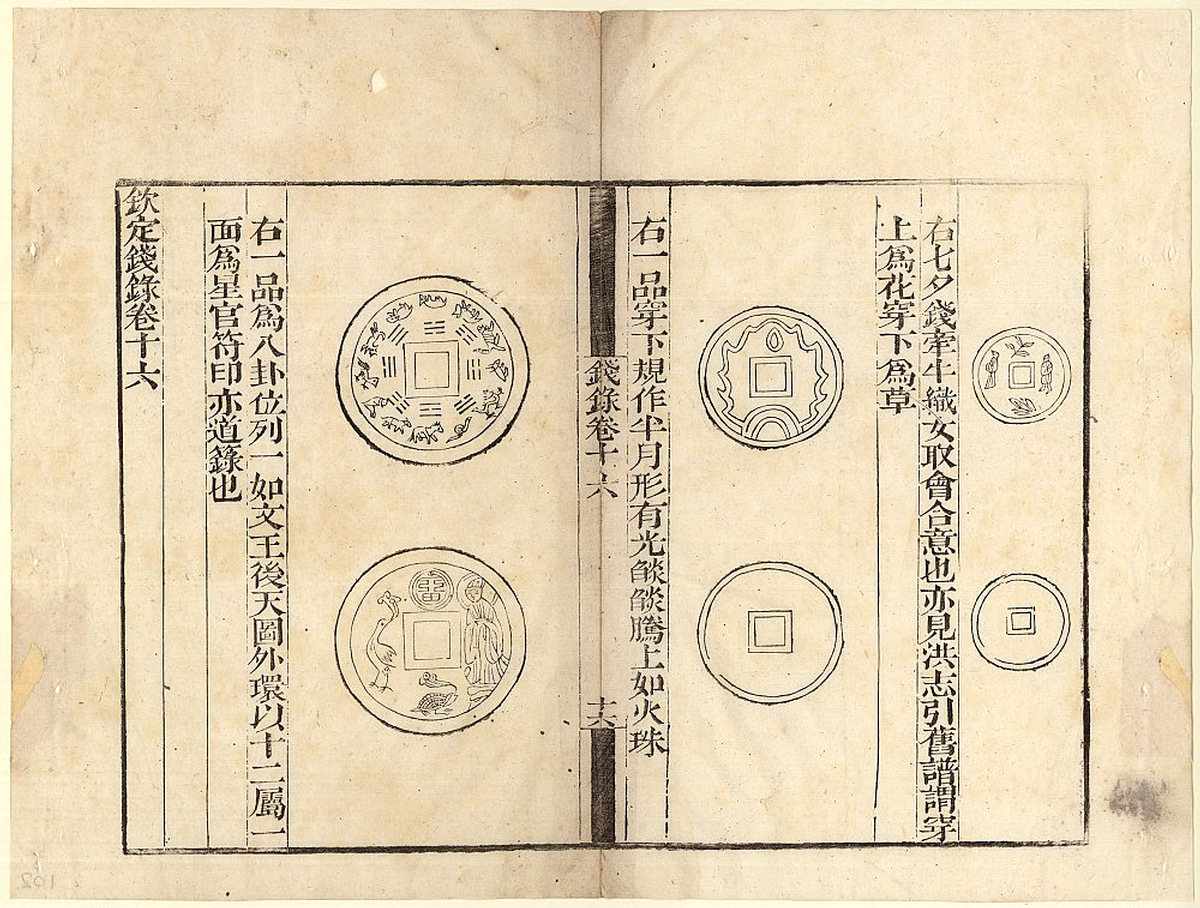 右七夕錢牽牛織女取會合意也亦見洪志引舊譜謂穿
上爲花穿下爲草
右一品穿下規作半月形有光燄燄騰上如火珠
錢錄卷十六
十六
右一品爲八卦位列一如文王後天圖外環以十二屬一
面爲星官符印亦道錄也
欽定錢錄卷十六
102